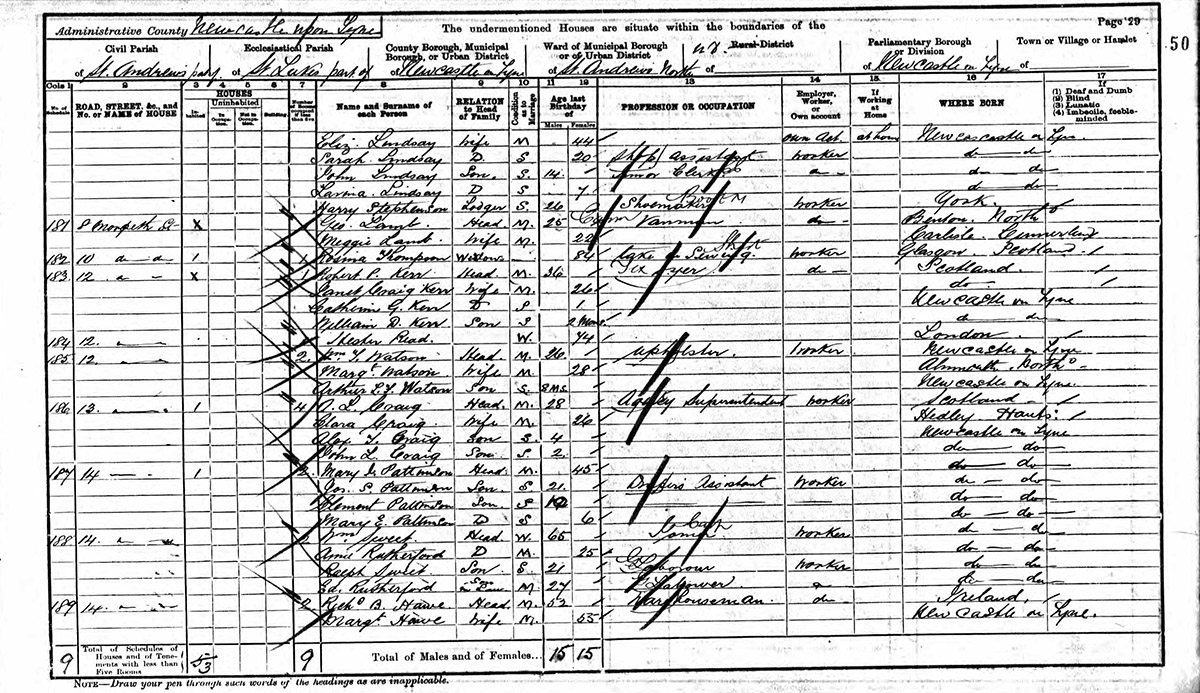 Administrative County Newcastle upon Tyne The undermentioned Houses are situate within the boundaries of the Page 29
50
Civil Parish Ecclesiastical Parish County Borough, Municipal Borough, or Urban District Ward of Municipal Borough or Urban District Rural District Parliamentary Borough or Division Town or Village or Hamlet
of St. Andrews part of St. Lukes part of of Newcastle on Tyne of St. Andrews North of of Newcastle on Tyne of
Cols 1 2 3 4 5 6 7 8 9 10 11 12 13 14 15 16 17
No. of Schedule ROAD, STREET, &c., and No. or NAME of HOUSE HOUSES Inhabited Uninhabited In Occupation. Not in Occupation. Building. Number of Rooms if less than five Name and Surname of each Person RELATION to Head of Family Condition as to Marriage Age last Birthday of Males Females PROFESSION OR OCCUPATION Employer, Worker, or Own account If Working at Home WHERE BORN If (1) Deaf and Dumb (2) Blind (3) Lunatic (4) Imbecile, feeble-minded
Eliz. Lindsay Wife M 44 own Act. at home Newcastle on Tyne
Sarah Lindsay D. S 20 Shop Assistant worker do do
John Lindsay Son. S. 14 Junior Clerk do do
Lavina Lindsay D S 7 do do
Harry Stephenson Lodger S. 26 Shoemaker worker York
181 8 Morpeth St X Geo. Lamb. Head M. 25 Vanman do Benton. North
Meggie Lamb. Wife M. 22 Carlisle. Cumberland
182 10 do do 1 Thompson Widow 84 worker Glasgow Scotland
183 12 X Robert P. Kerr Head. M. 36 do Scotland
Janet Craig Kerr Wife M. 26 do
Catherine G. Kerr D S 1 Newcastle on Tyne
William D. Kerr Son S 2 Mons do do
184 12. Hester Read. W. 74 London
185 12. 2. Wm Y. Watson Head M. 26 Upholster. worker Newcastle on Tyne
Margt. Watson Wife M. 28 Alnmouth North
Arthur L.Y. Watson Son S. 8 MS Newcastle on Tyne
186 13. 1 4 L. Craig Head. M. 28 Superintendent worker Scotland
Clara Craig. Wife M. 26 Hedley Hants
Alex Y. Craig Son S. 4 Newcastle on Tyne
John L. Craig Son S 2. do do
187 14 1 2 Mary Pattinson Head M. 45 do do
Jos. S. Pattinson Son. S 21 Drapers Assistant worker do do
Clement Pattinson Son S do do
Mary E. Pattinson D S 6 do do
188 14. Wm Sweet Head W. 65 worker do d
Annie Rutherford D M. 25 do do
Ralph Sweet Son S. 21 Labourer worker do do
Ed. Rutherford Son in Law M. 27 do do
189 14 2 Richd B. Hawe Head M. 52 Warehouseman. do Ireland
Margt. Hawe Wife M. 53 Newcastle on Tyne.
9 Total of Schedules of Houses and of Tenements with less than Five Rooms 5/3 9 Total of Males and of Females... 15 15
NOTE—Draw your pen through such words of the headings as are inapplicable.